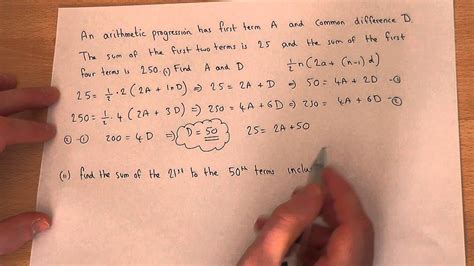 An arithmetic progression has first term A and common difference D.
The sum of the first two terms is 25 and the sum of the first
four terms is 250. (i) Find A and D    ½n(2a + (n-1)d)
25 = ½·2(2A + 1D) ⇒ 25 = 2A + D ⇒ 50 = 4A + 2D -①
250 = ½·4(2A + 3D) ⇒ 250 = 4A + 6D ⇒ 250 = 4A + 6D -②
②-① 200 = 4D ⇒ D = 50    25 = 2A + 50
(ii) find the sum of the 21st to the 50th terms inclu